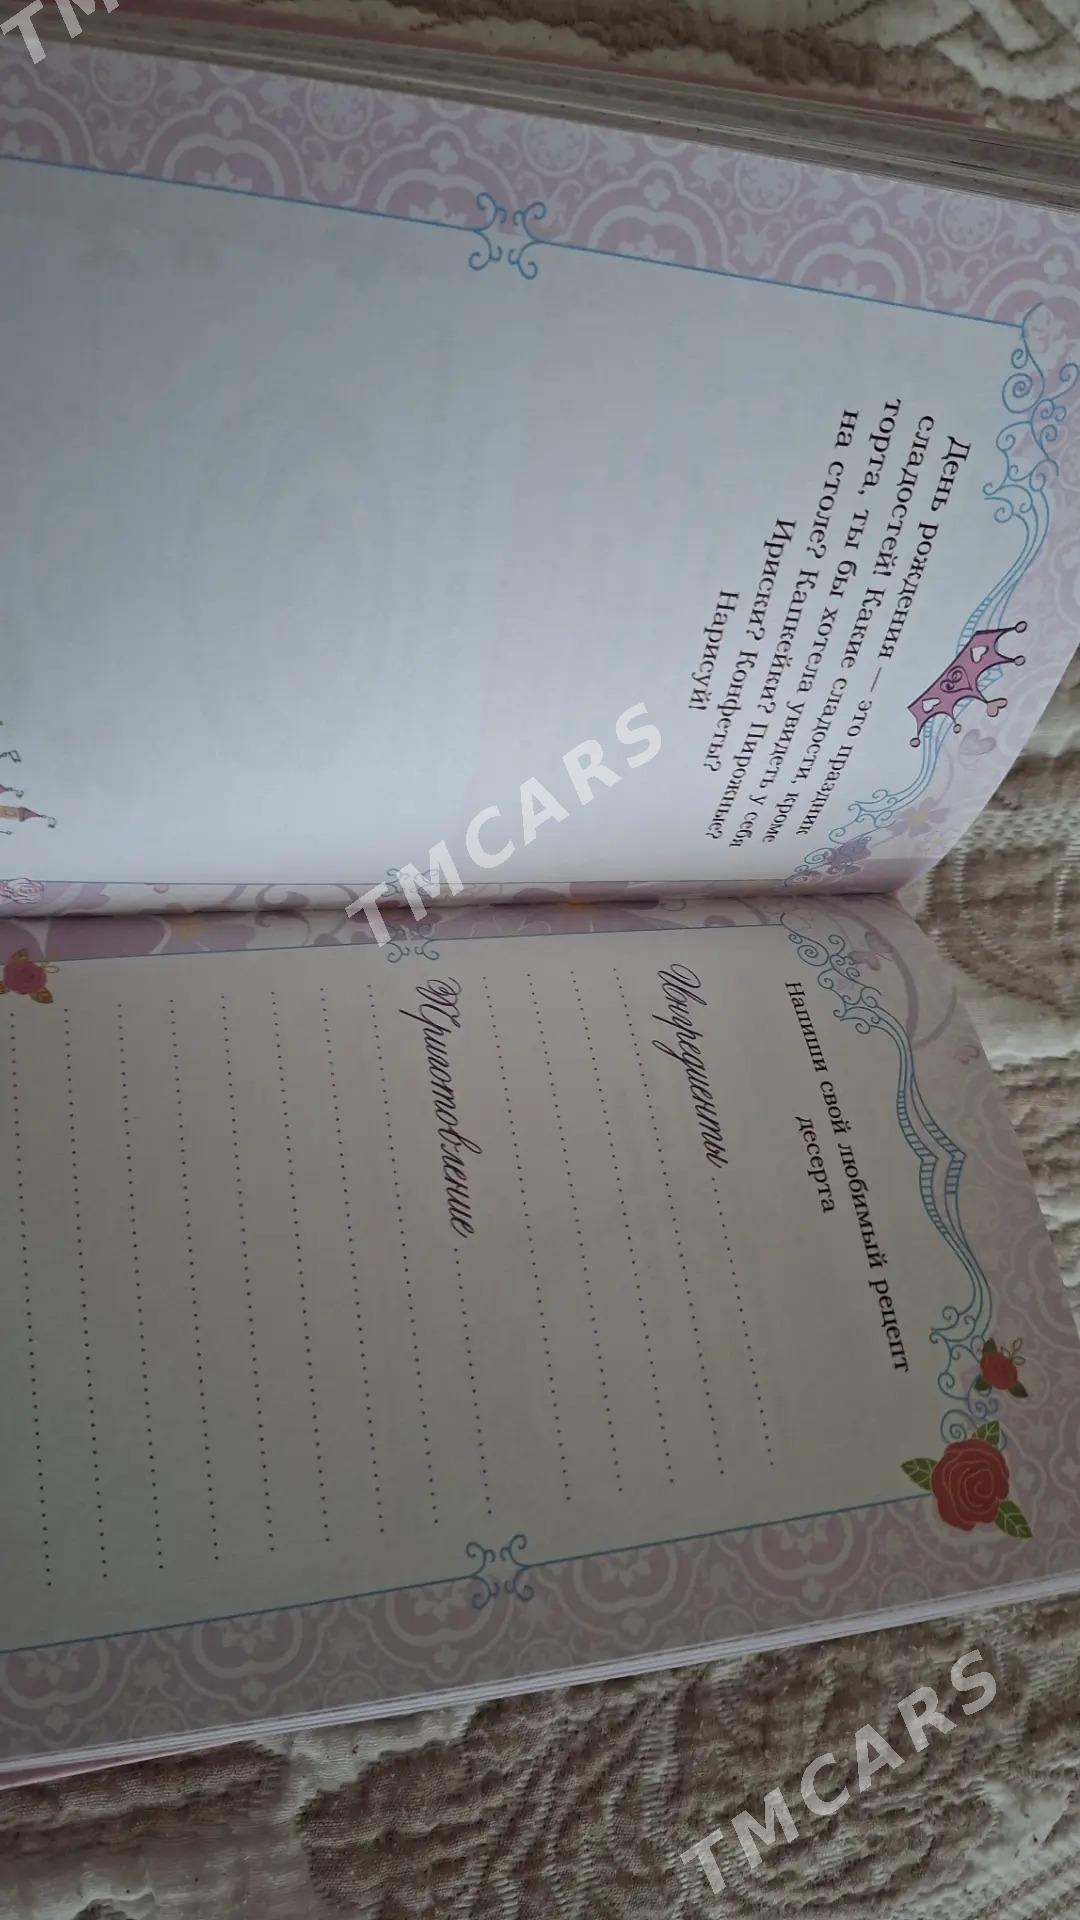 День рождения — это праздник
сладостей! Какие сладости, кроме
торта, ты бы хотела увидеть у себя
на столе? Капкейки? Пирожные?
Ириски? Конфеты?
Нарисуй!
Напиши свой любимый рецепт
десерта
Ингредиенты
Приготовление
TMCARS
TMCARS
TM